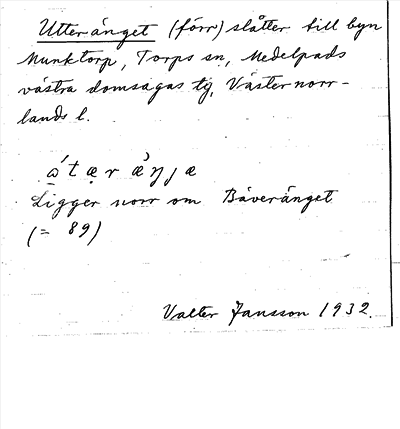 Utteränget (förr) slåtter till byn
Munktorp, Torps sn, Medelpads
västra domsagas tg, Västernorr-
lands l.
ώtær æ̀ŋjæ
Ligger norr om Bäveränget
(= 89)
Valter Jansson 1932.